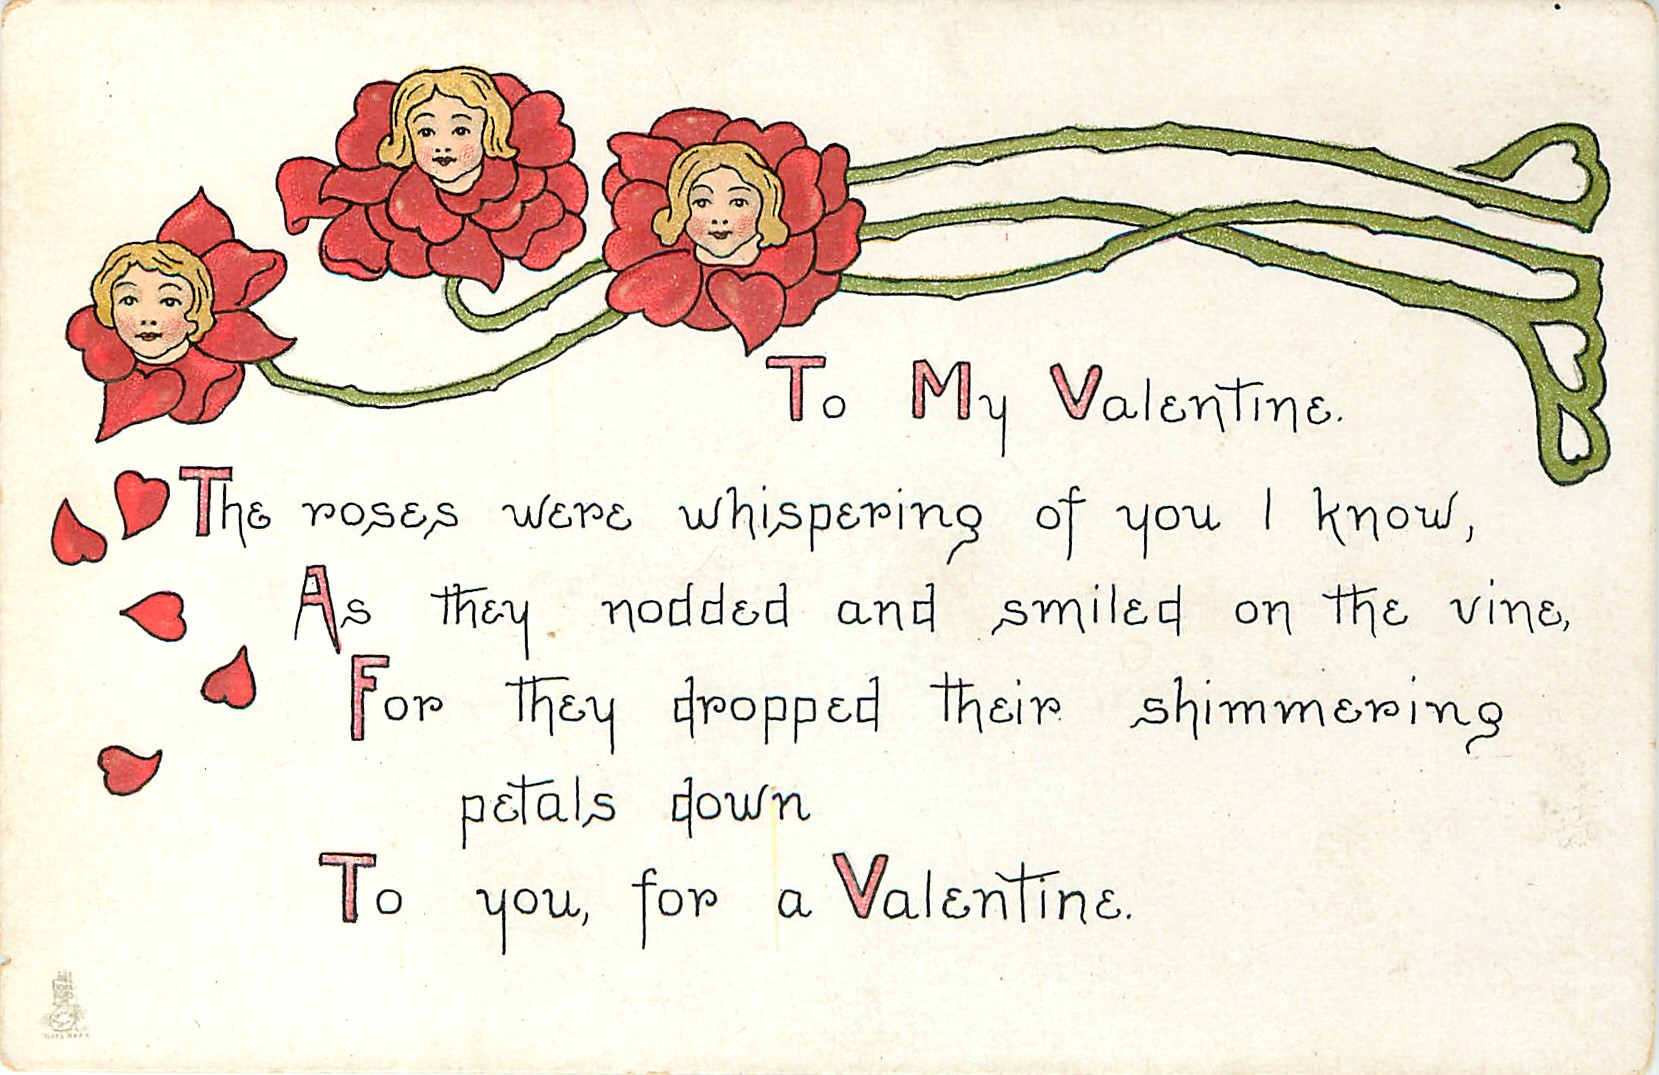 To My Valentine.
The roses were whispering of you I know,
As they nodded and smiled on the vine,
For they dropped their shimmering
petals down
To you, for a Valentine.